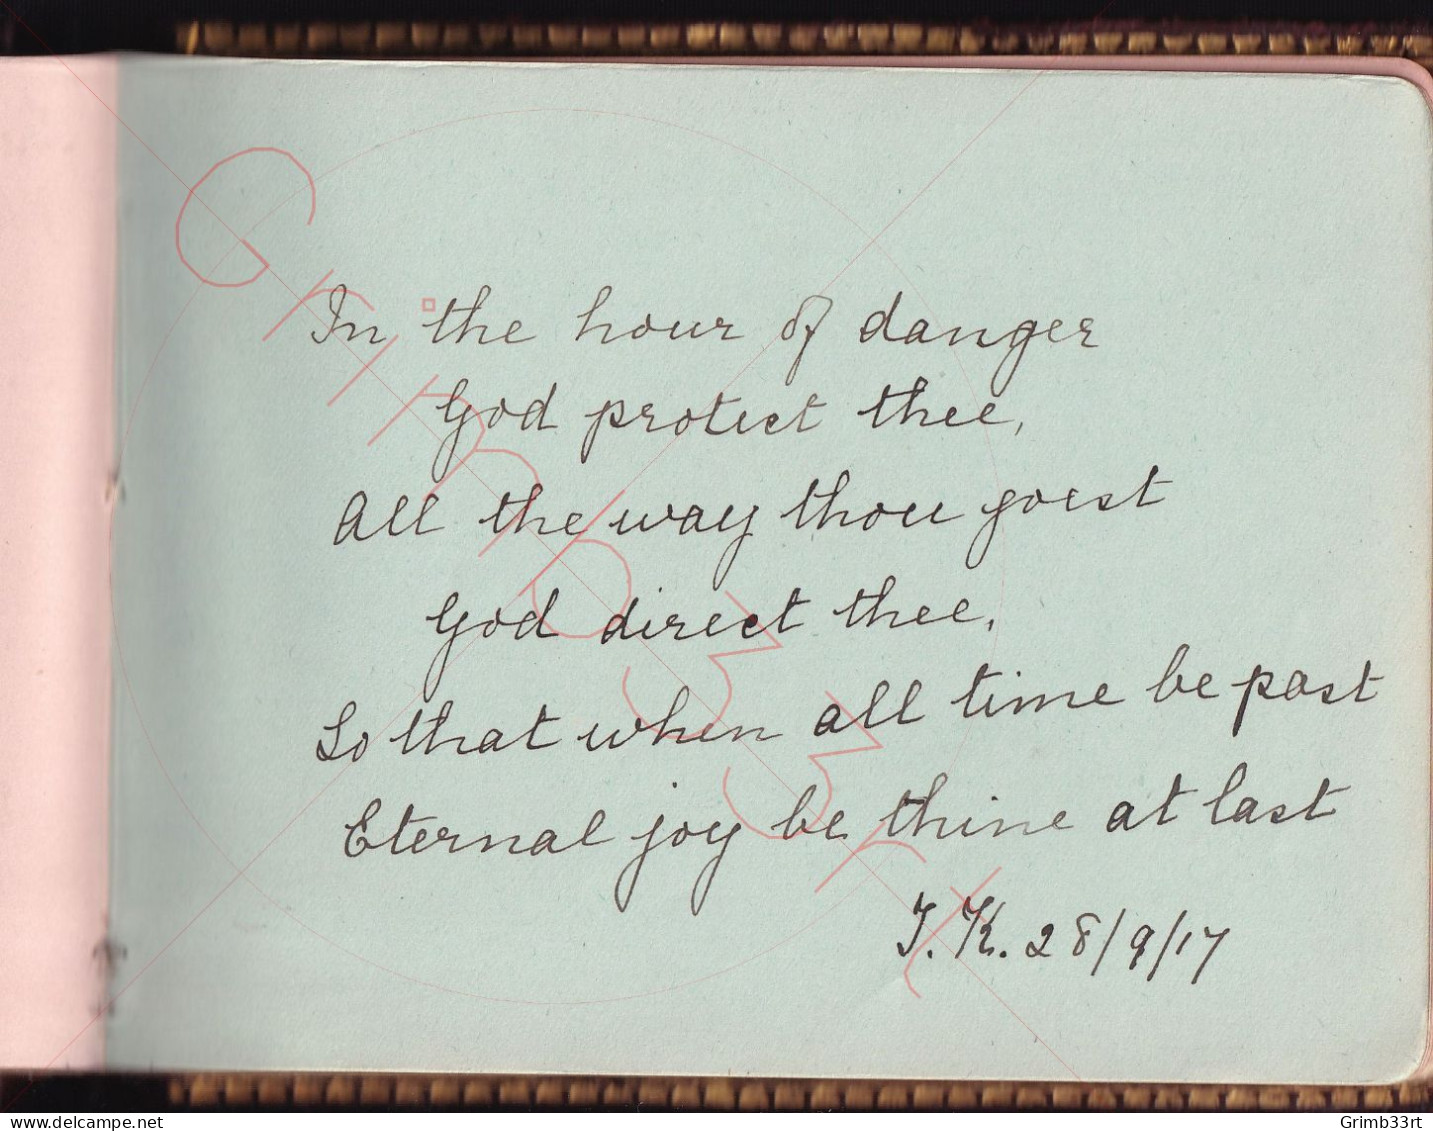 In the hour of danger
God protect thee,
All the way thou goest
God direct thee.
So that when all time be past
Eternal joy be thine at last
J.K. 28/9/17
Grimb33rt
© www.delcampe.net
Grimb33rt